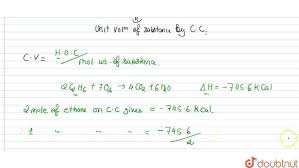 Unit vol^m of substance by C.C.
C.V = H.O.C / mol wt. of substance
2C₂H₆ + 7O₂ → 4CO₂ + 6H₂O ΔH = -745.6 KCal
2 mole of ethane on C.C gives = -745.6 KCal.
1 " " " " = -745.6 / 2
doubtnut